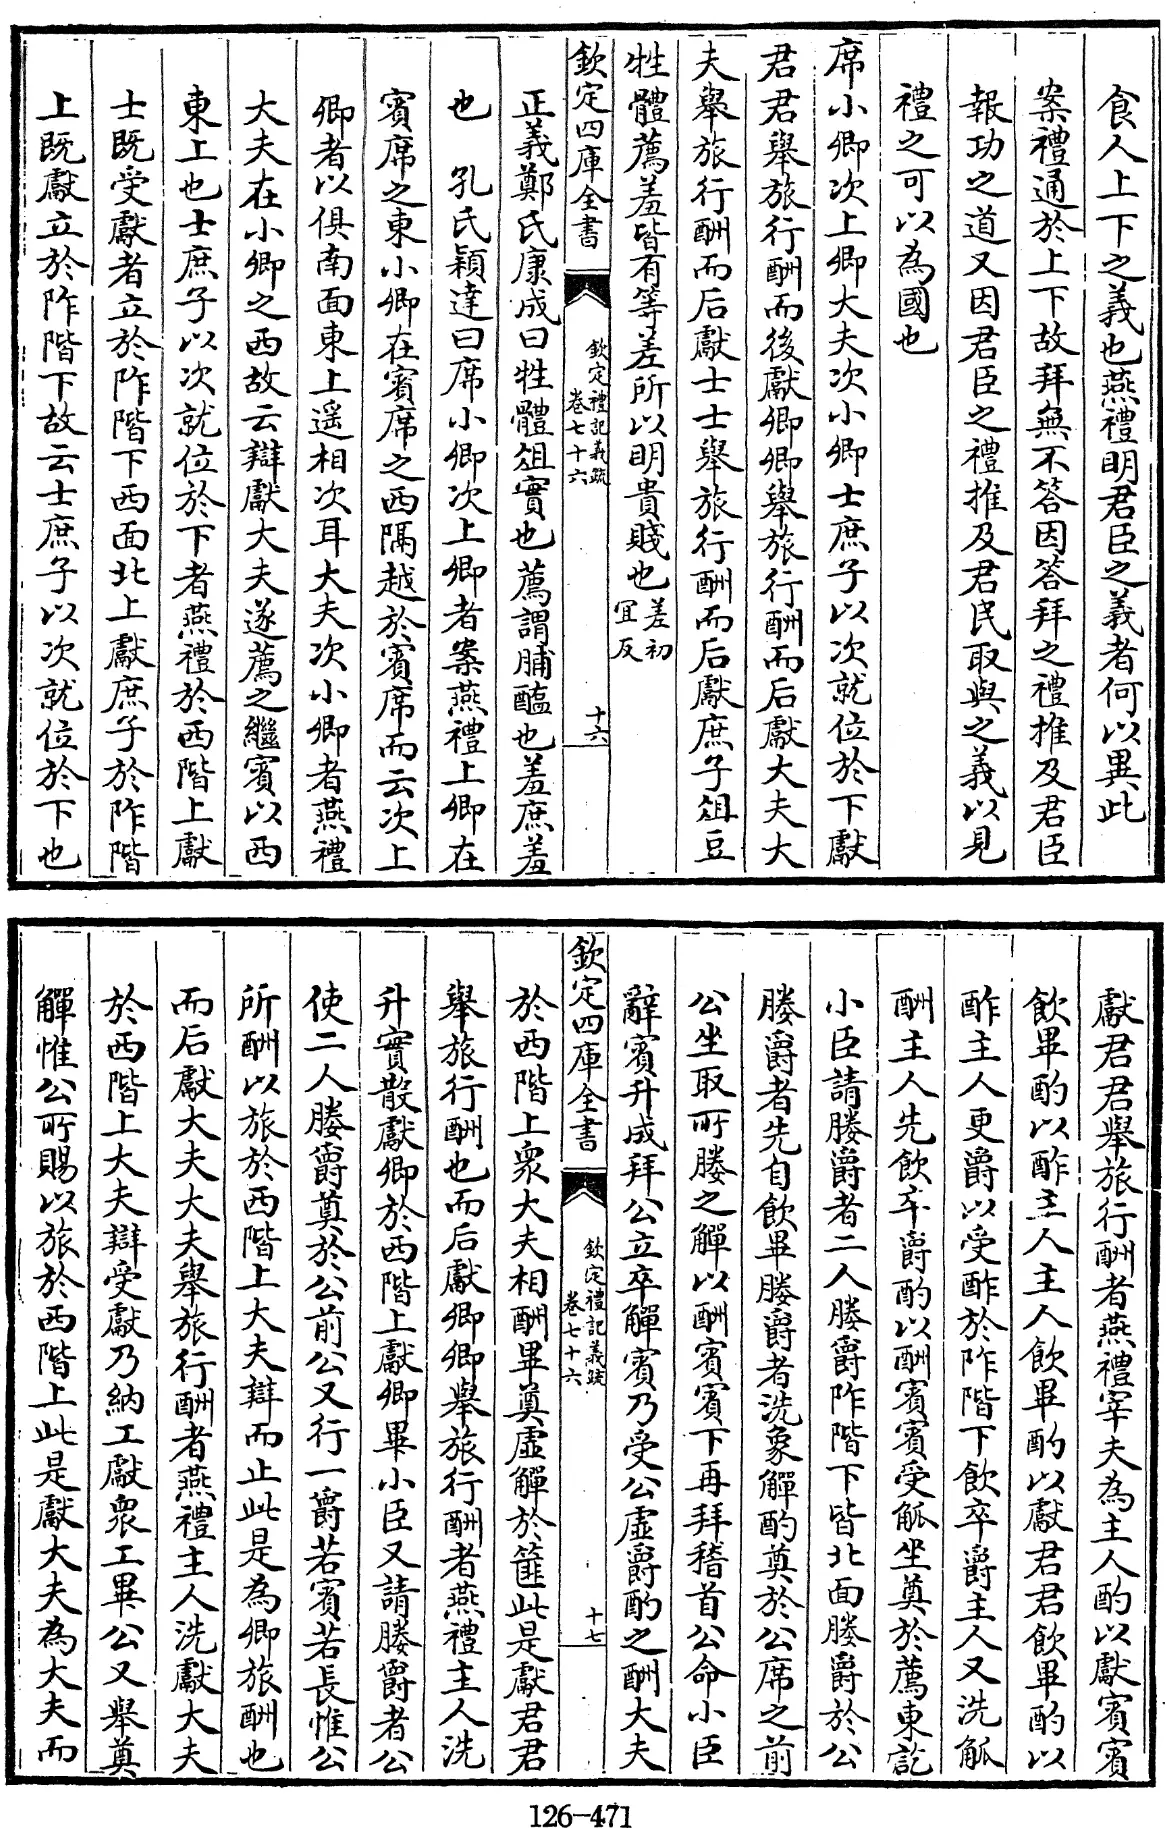 食人上下之義也燕禮明君臣之義者何以異此
案禮通於上下故拜無不答因答拜之禮推及君臣
報功之道又因君臣之禮推及君民取與之義以見
禮之可以為國也
席小卿次上卿大夫次小卿士庶子以次就位於下獻
君君舉旅行酬而後獻卿卿舉旅行酬而后獻大夫大
夫舉旅行酬而后獻士士舉旅行酬而后獻庶子俎豆
牲體薦羞皆有等差所以明貴賤也差初宜反
欽定四庫全書
欽定禮記義疏
卷七十六
十六
正義鄭氏康成曰牲體俎實也薦謂脯醢也羞庶羞
也　孔氏穎達曰席小卿次上卿者案燕禮上卿在
賓席之東小卿在賓席之西隔越於賓席而云次上
卿者以俱南面東上遥相次耳大夫次小卿者燕禮
大夫在小卿之西故云辯獻大夫遂薦之繼賓以西
東上也士庶子以次就位於下者燕禮於西階上獻
士既受獻者立於阼階下西面北上獻庶子於阼階
上既獻立於阼階下故云士庶子以次就位於下也
獻君君舉旅行酬者燕禮宰夫為主人酌以獻賓賓
飲畢酌以酢主人主人飲畢酌以獻君君飲畢酌以
酢主人更爵以受酢於阼階下飲卒爵主人又洗觚
酬主人先飲卒爵酌以酬賓賓受觚坐奠於薦東訖
小臣請媵爵者二人媵爵阼階下皆北面媵爵於公
媵爵者先自飲畢媵爵者洗象觶酌奠於公席之前
公坐取所媵之觶以酬賓賓下再拜稽首公命小臣
辭賓升成拜公立卒觶賓乃受公虛爵酌之酬大夫
欽定四庫全書
欽定禮記義疏
卷七十六
十七
於西階上衆大夫相酬畢奠虛觶於篚此是獻君君
舉旅行酬也而后獻卿卿舉旅行酬者燕禮主人洗
升實散獻卿於西階上獻卿畢小臣又請媵爵者公
使二人媵爵奠於公前公又行一爵若賓若長惟公
所酬以旅於西階上大夫辯而止此是為卿旅酬也
而后獻大夫大夫舉旅行酬者燕禮主人洗獻大夫
於西階上大夫辯受獻乃納工獻衆工畢公又舉奠
觶惟公所賜以旅於西階上此是獻大夫為大夫而
126-471